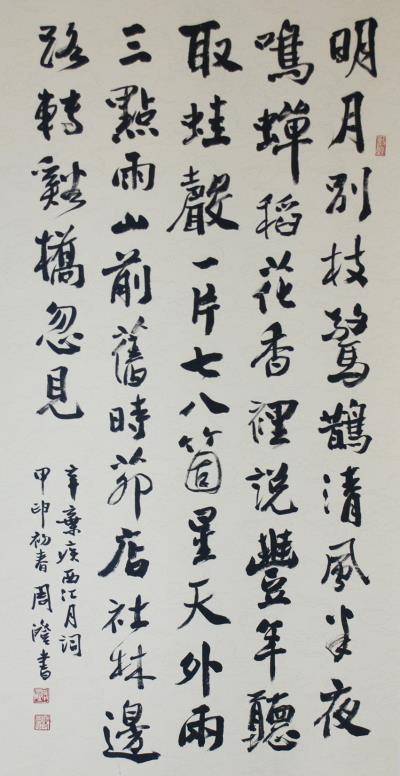 明月別枝驚鵲清風半夜
鳴蟬稻花香裡說豐年聽
取蛙聲一片七八箇星天外兩
三點雨山前舊時茆店社林邊
路轉谿橋忽見
辛棄疾西江月詞
甲申初春周澄書